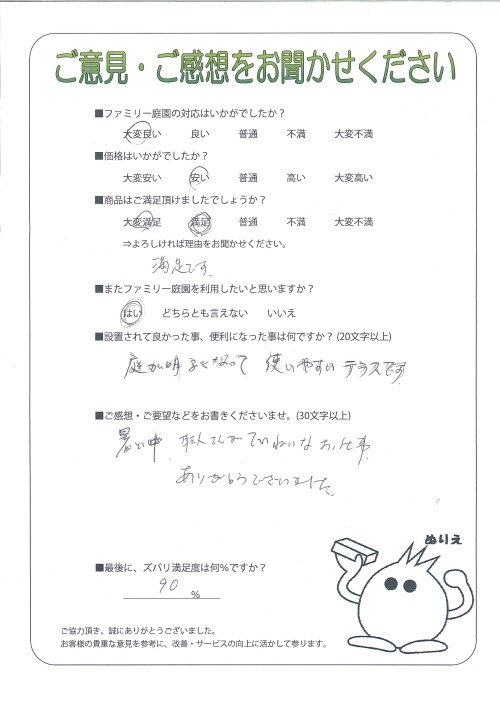 ご意見・ご感想をお聞かせください
■ファミリー庭園の対応はいかがでしたか？
大変良い 良い 普通 不満 大変不満
■価格はいかがでしたか？
大変安い 安い 普通 高い 大変高い
■商品はご満足頂けましたでしょうか？
大変満足 満足 普通 不満 大変不満
⇒よろしければ理由をお聞かせください。
満足です。
■またファミリー庭園を利用したいと思いますか？
はい どちらとも言えない いいえ
■設置されて良かった事、便利になった事は何ですか？(20文字以上)
庭が明るくなって 使いやすい テラスです
■ご感想・ご要望などをお書きくださいませ。(30文字以上)
暑い中、職人さんがていねいなお仕事
ありがとうございました。
ぬりえ
■最後に、ズバリ満足度は何％ですか？
90 %
ご協力頂き、誠にありがとうございました。
お客様の貴重な意見を参考に、改善・サービスの向上に活かして参ります。